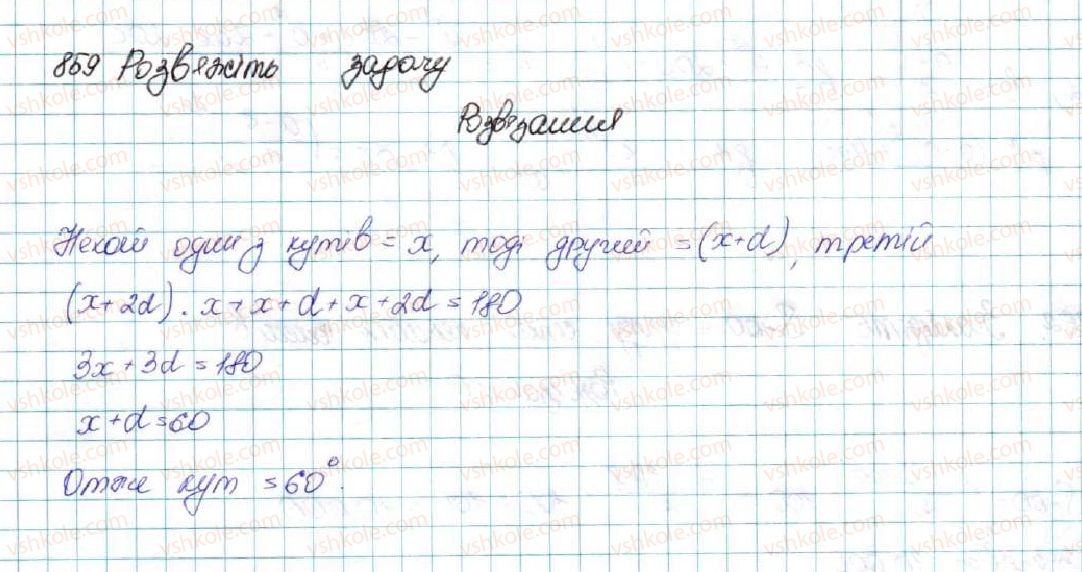 859 Розвяжіть задачу
Рзвязання
Нехай один з кутів = x, тоді другий = (x+d), третій
(x+2d). x+x+d+x+2d=180
3x+3d=180
x+d=60
Отже кут =60°.